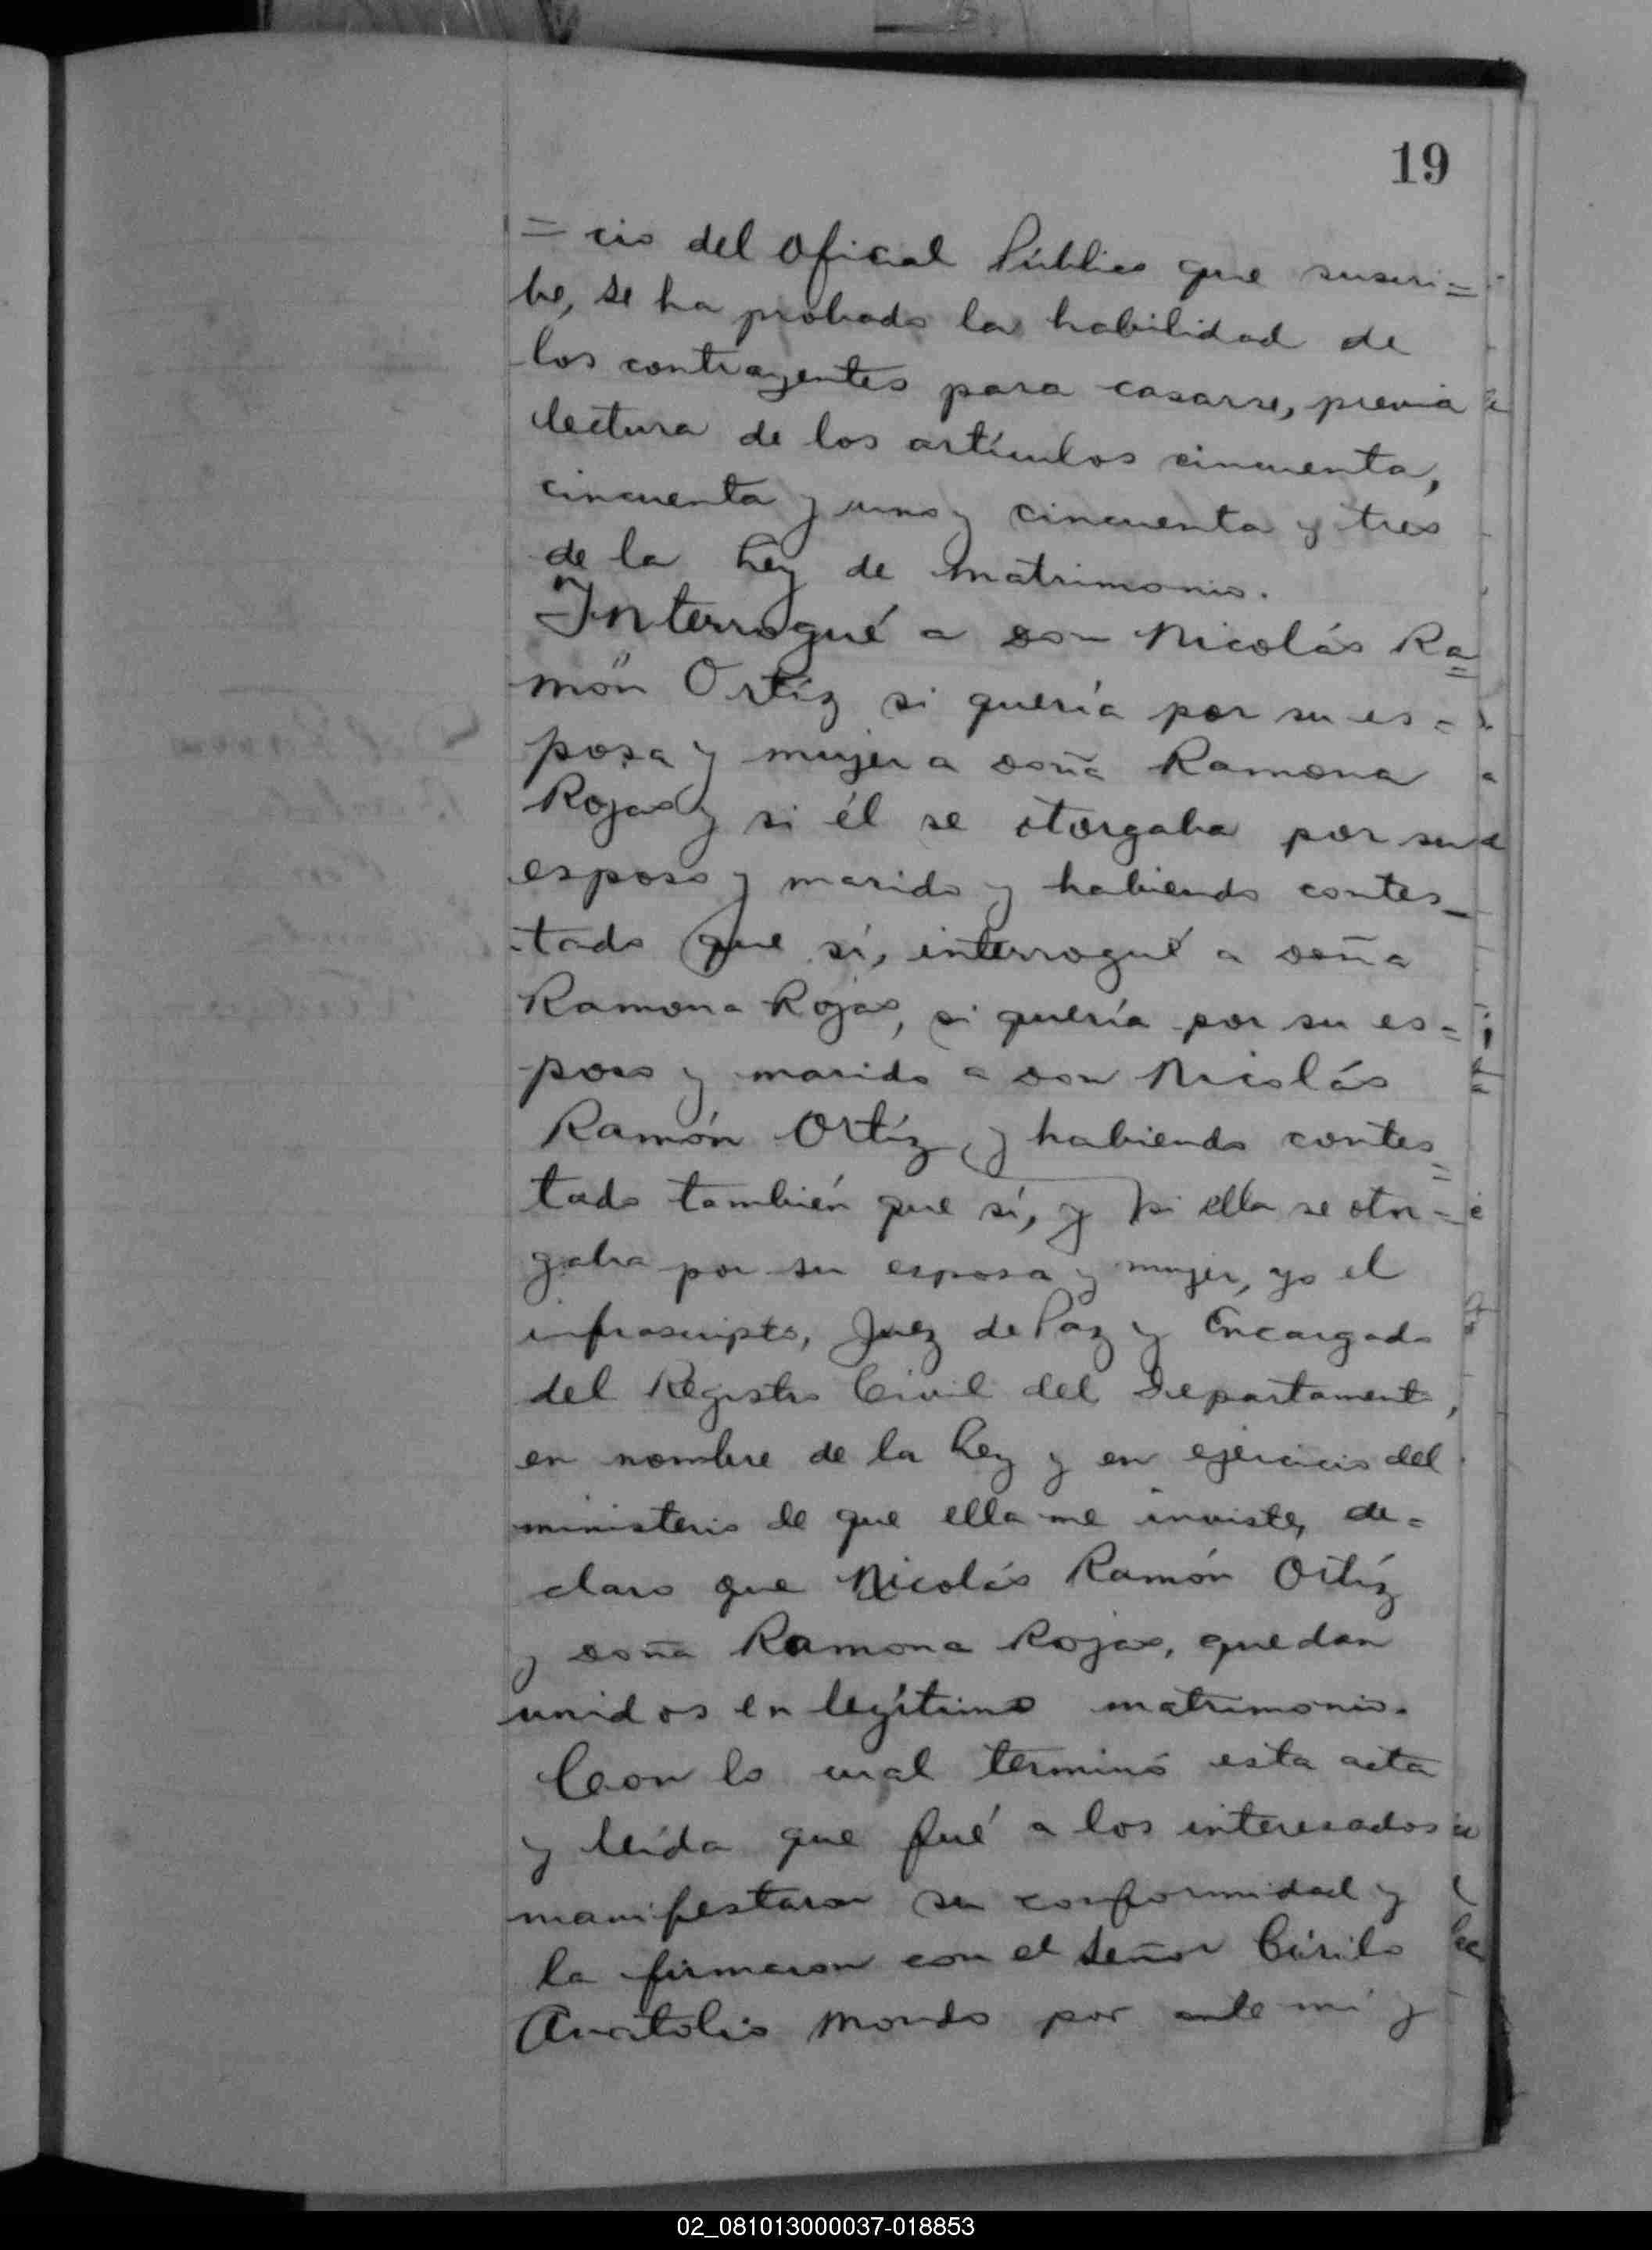 19
= cio del Oficial Público que suscri=
be, se ha probado la habilidad de
los contrayentes para casarse, previa
lectura de los artículos cincuenta,
cincuenta y uno y cincuenta y tres
de la Ley de Matrimonio.
Interrogué a don Nicolás Ra=
món Ortíz si quería por su es=
posa y mujer a doña Ramona
Rojas y si él se otorgaba por su
esposo y marido y habiendo contes_
tado que sí, interrogué a doña
Ramona Rojas, si quería por su es=
poso y marido a don Nicolás
Ramón Ortíz, y habiendo contes=
tado también que sí, y si ella se otor=
gaba por su esposa y mujer, yo el
infrascripto, Juez de Paz y Encargado
del Registro Civil del Departamento,
en nombre de la Ley y en ejercicio del
ministerio de que ella me inviste, de=
claro que Nicolás Ramón Ortíz
y doña Ramona Rojas, quedan
unidos en legítimo matrimonio.
Con lo cual terminó esta acta
y leída que fué a los interesados
manifestaron su conformidad y
la firmaron con el señor Cirilo
Anatolio Mondo por ante mí y
02_081013000037-018853